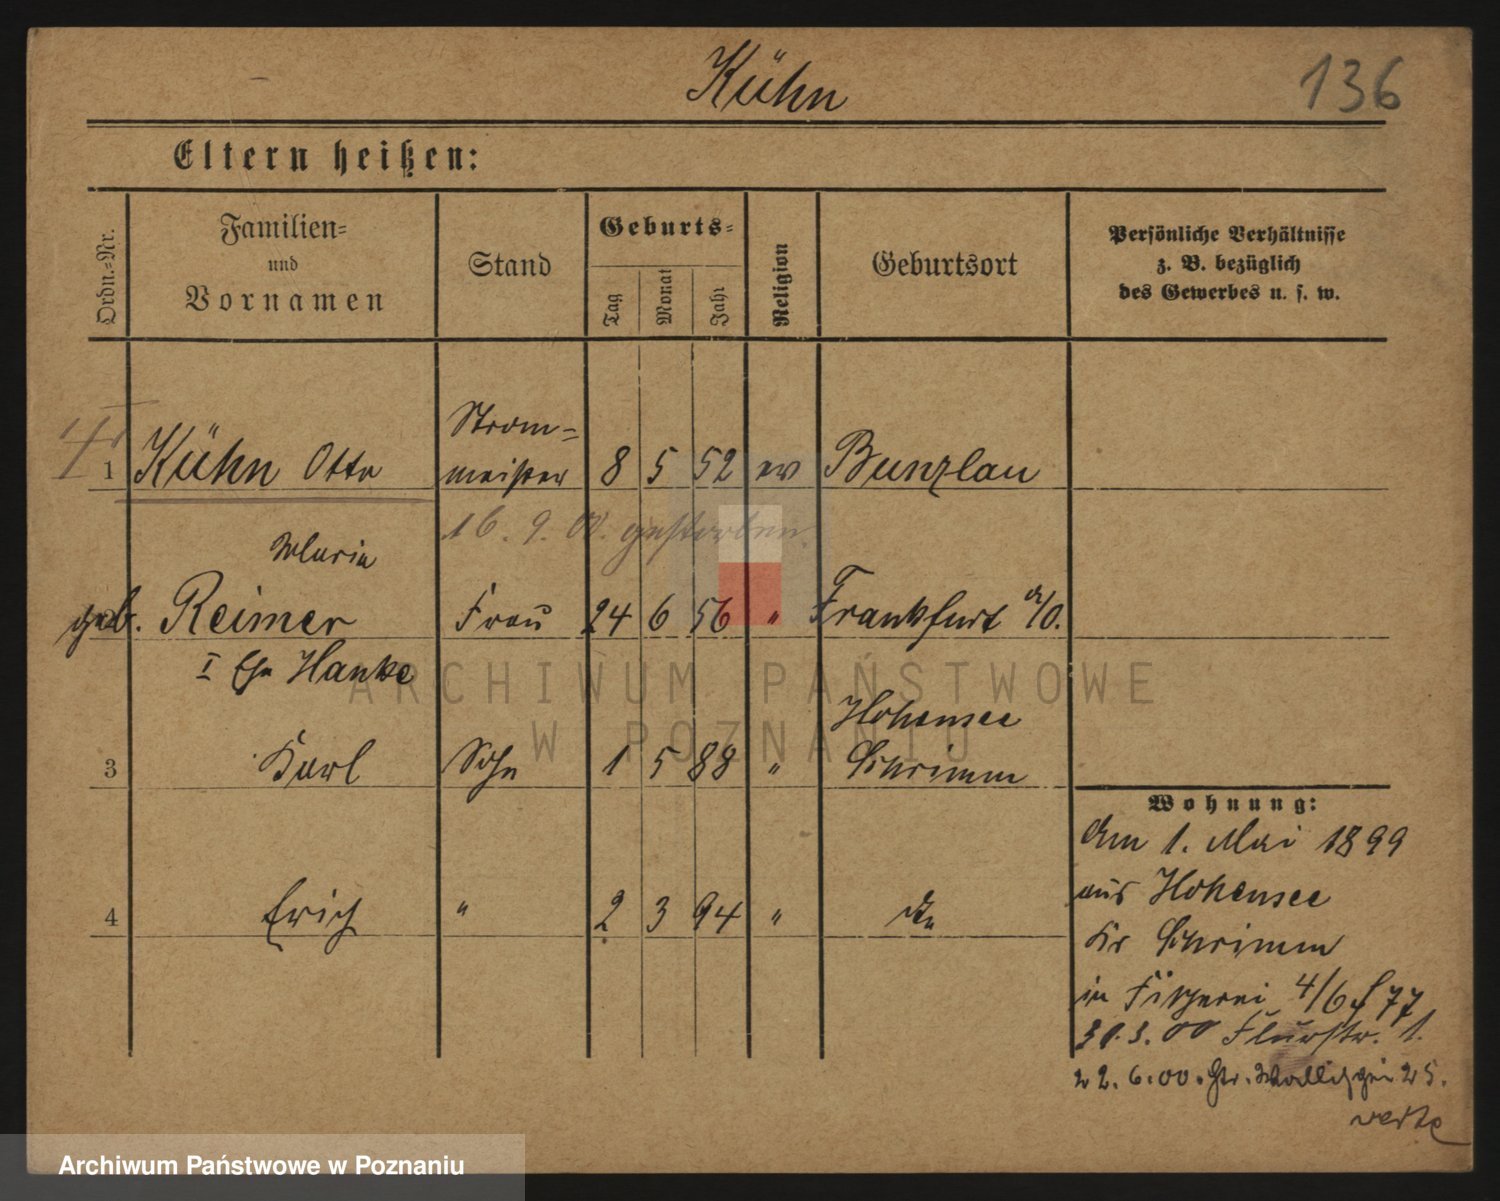 Kühn
136
Eltern heißen:
Ordn.=Nr.
Familien=
und
Vornamen
Stand
Geburts=
Tag
Monat
Jahr
Religion
Geburtsort
Persönliche Verhältnisse
z. B. bezüglich
des Gewerbes u. s. w.
1 Kühn Otto Strom=
meister 8 5 52 ev Bunzlau
16. 9. 00. gestorben.
Maria
geb. Reimer Frau 24 6 56 " Frankfurt a/O.
I Ehe Hanke
3 Karl Sohn 1 5 88 " Hohensee
Schrimm
4 Erich " 2 3 94 " do
Wohnung:
Am 1. Mai 1899
aus Hohensee
Kr Schrimm
in Fischerei 4/6 f 77
31.3.00 Flurstr. 1.
22.6.00. Gr. 25.
verte
ARCHIWUM PAŃSTWOWE
W POZNANIU
Archiwum Państwowe w Poznaniu